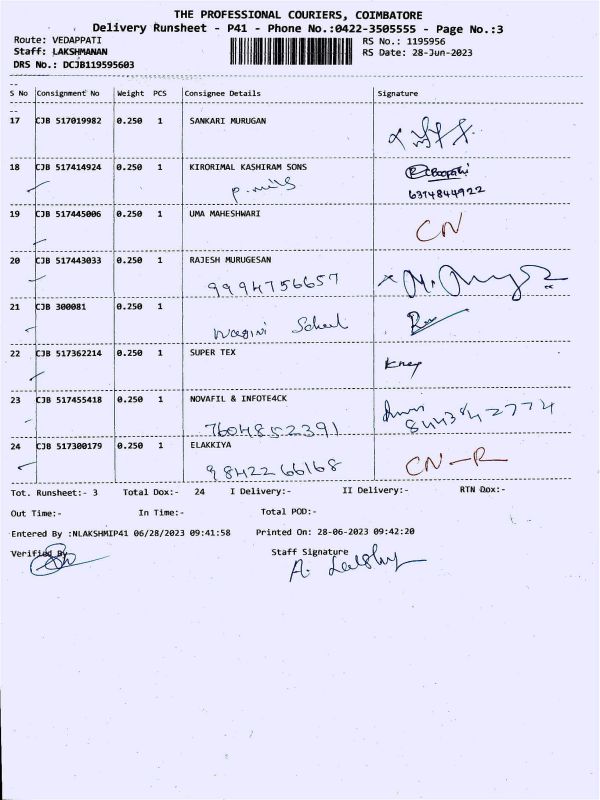 THE PROFESSIONAL COURIERS, COIMBATORE
Delivery Runsheet - P41 - Phone No.:0422-3505555 - Page No.:3
Route: VEDAPPATI RS No.: 1195956
Staff: LAKSHMANAN RS Date: 28-Jun-2023
DRS No.: DCJB119595603
S No Consignment No Weight PCS Consignee Details Signature
17 CJB 517019982 0.250 1 SANKARI MURUGAN
18 CJB 517414924 0.250 1 KIRORIMAL KASHIRAM SONS
P. mills
6374844922
19 CJB 517445006 0.250 1 UMA MAHESHWARI CN
20 CJB 517443033 0.250 1 RAJESH MURUGESAN
9994756657
21 CJB 300081 0.250 1
22 CJB 517362214 0.250 1 SUPER TEX
23 CJB 517455418 0.250 1 NOVAFIL & INFOTE4CK
7604852391
24 CJB 517300179 0.250 1 ELAKKIYA CN-R
9842266168
Tot. Runsheet:- 3 Total Dox:- 24 I Delivery:- II Delivery:- RTN Dox:-
Out Time:- In Time:- Total POD:-
Entered By :NLAKSHMIP41 06/28/2023 09:41:58 Printed On: 28-06-2023 09:42:20
Verified By Staff Signature